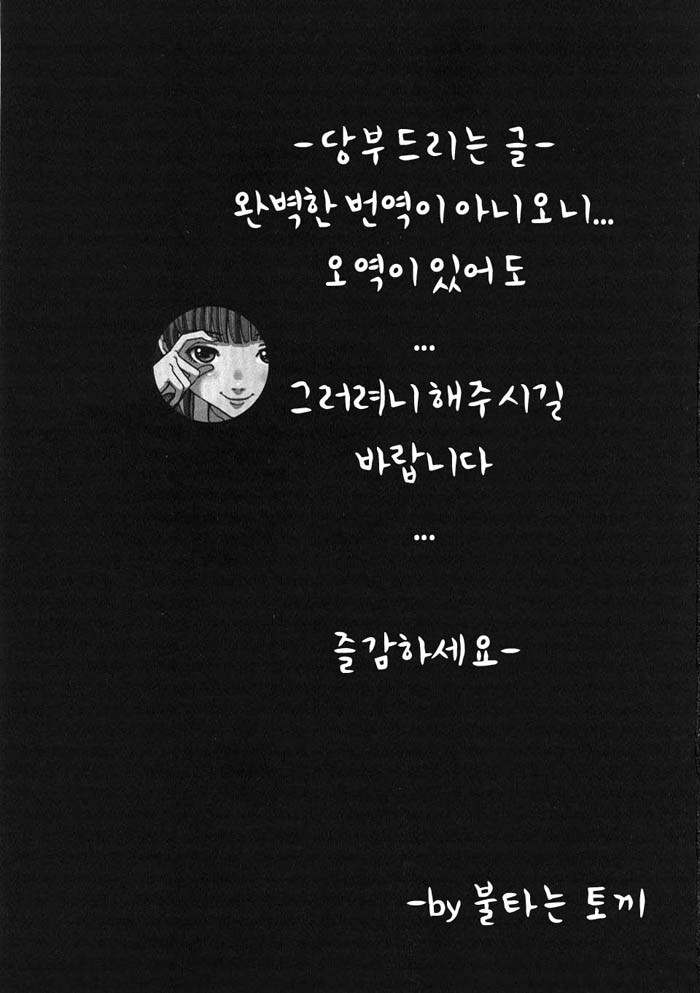 -당부드리는 글-
완벽한 번역이 아니오니...
오역이 있어도
...
그러려니 해주시길
바랍니다
...
즐감하세요-
-by 불타는 토끼